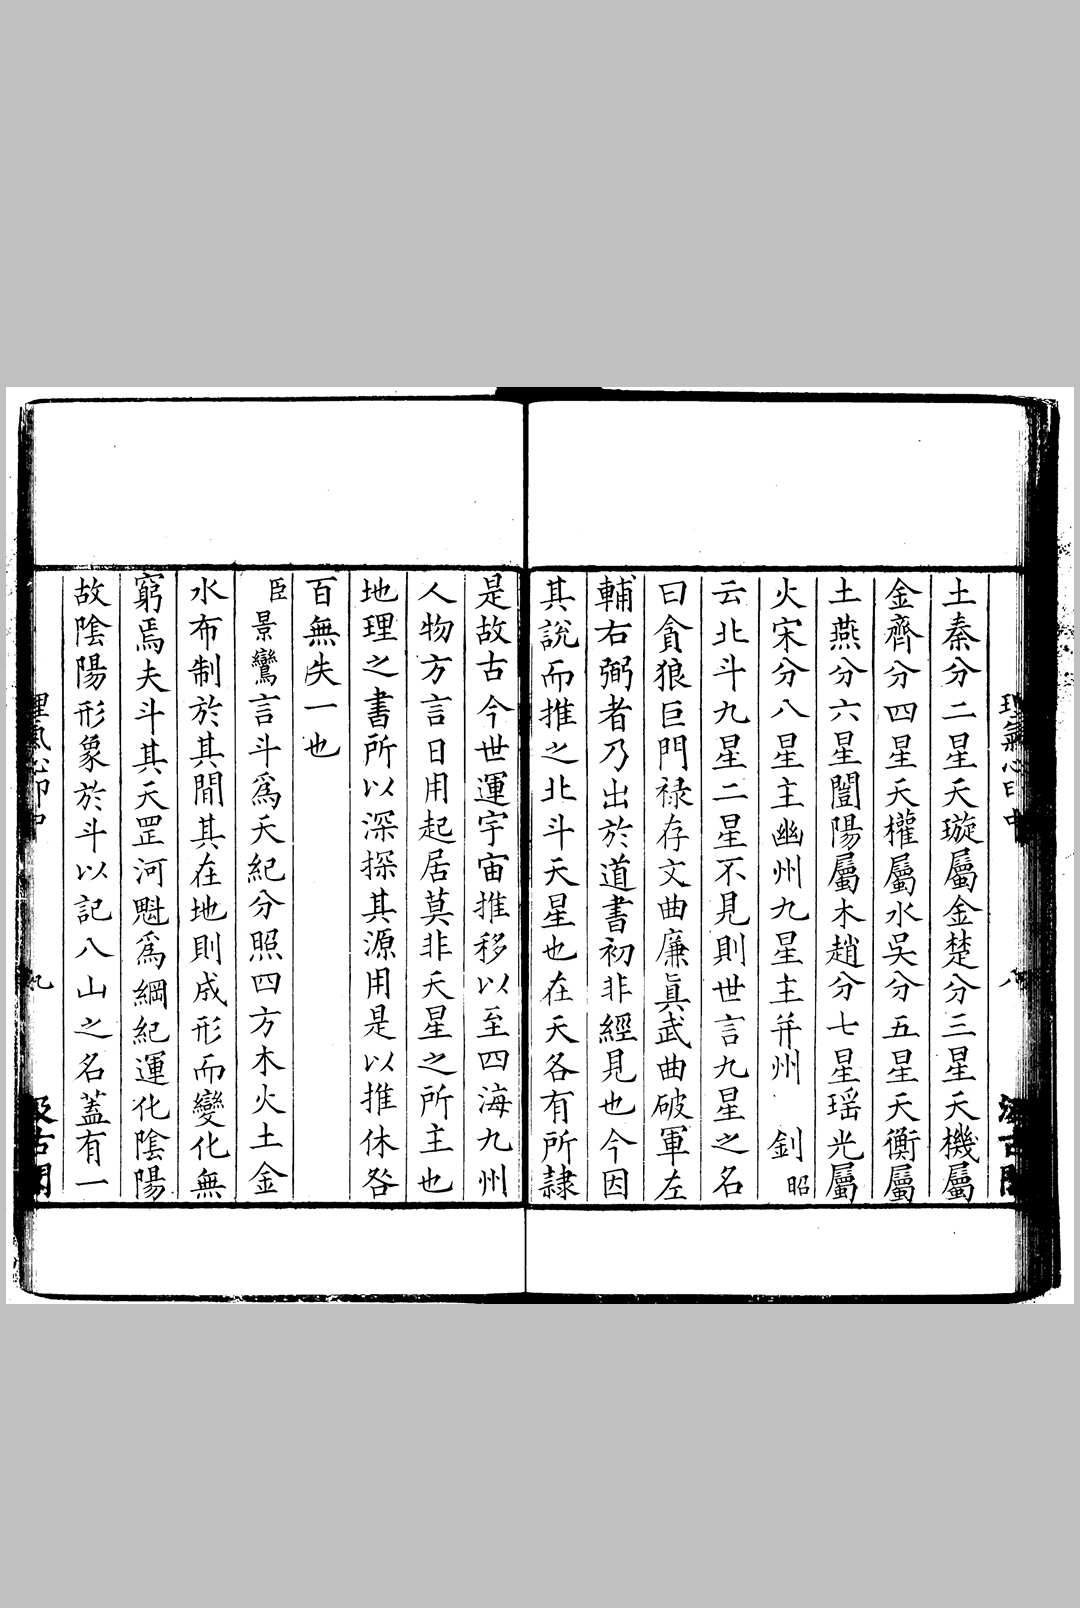 理氣心印中 八 汲古閣
土秦分二星天璇屬金楚分三星天機屬
金齊分四星天權屬水吳分五星天衡屬
土燕分六星闓陽屬木趙分七星瑶光屬
火宋分八星主幽州九星主并州 釗昭
云北斗九星二星不見則世言九星之名
曰貪狼巨門祿存文曲廉眞武曲破軍左
輔右弼者乃出於道書初非經見也今因
其說而推之北斗天星也在天各有所隸
是故古今世運宇宙推移以至四海九州
人物方言日用起居莫非天星之所主也
地理之書所以深探其源用是以推休咎
百無失一也
臣景鸞言斗爲天紀分照四方木火土金
水布制於其間其在地則成形而變化無
窮焉夫斗其天罡河魁爲綱紀運化陰陽
故陰陽形象於斗以記八山之名蓋有一
理氣心印中 九 汲古閣